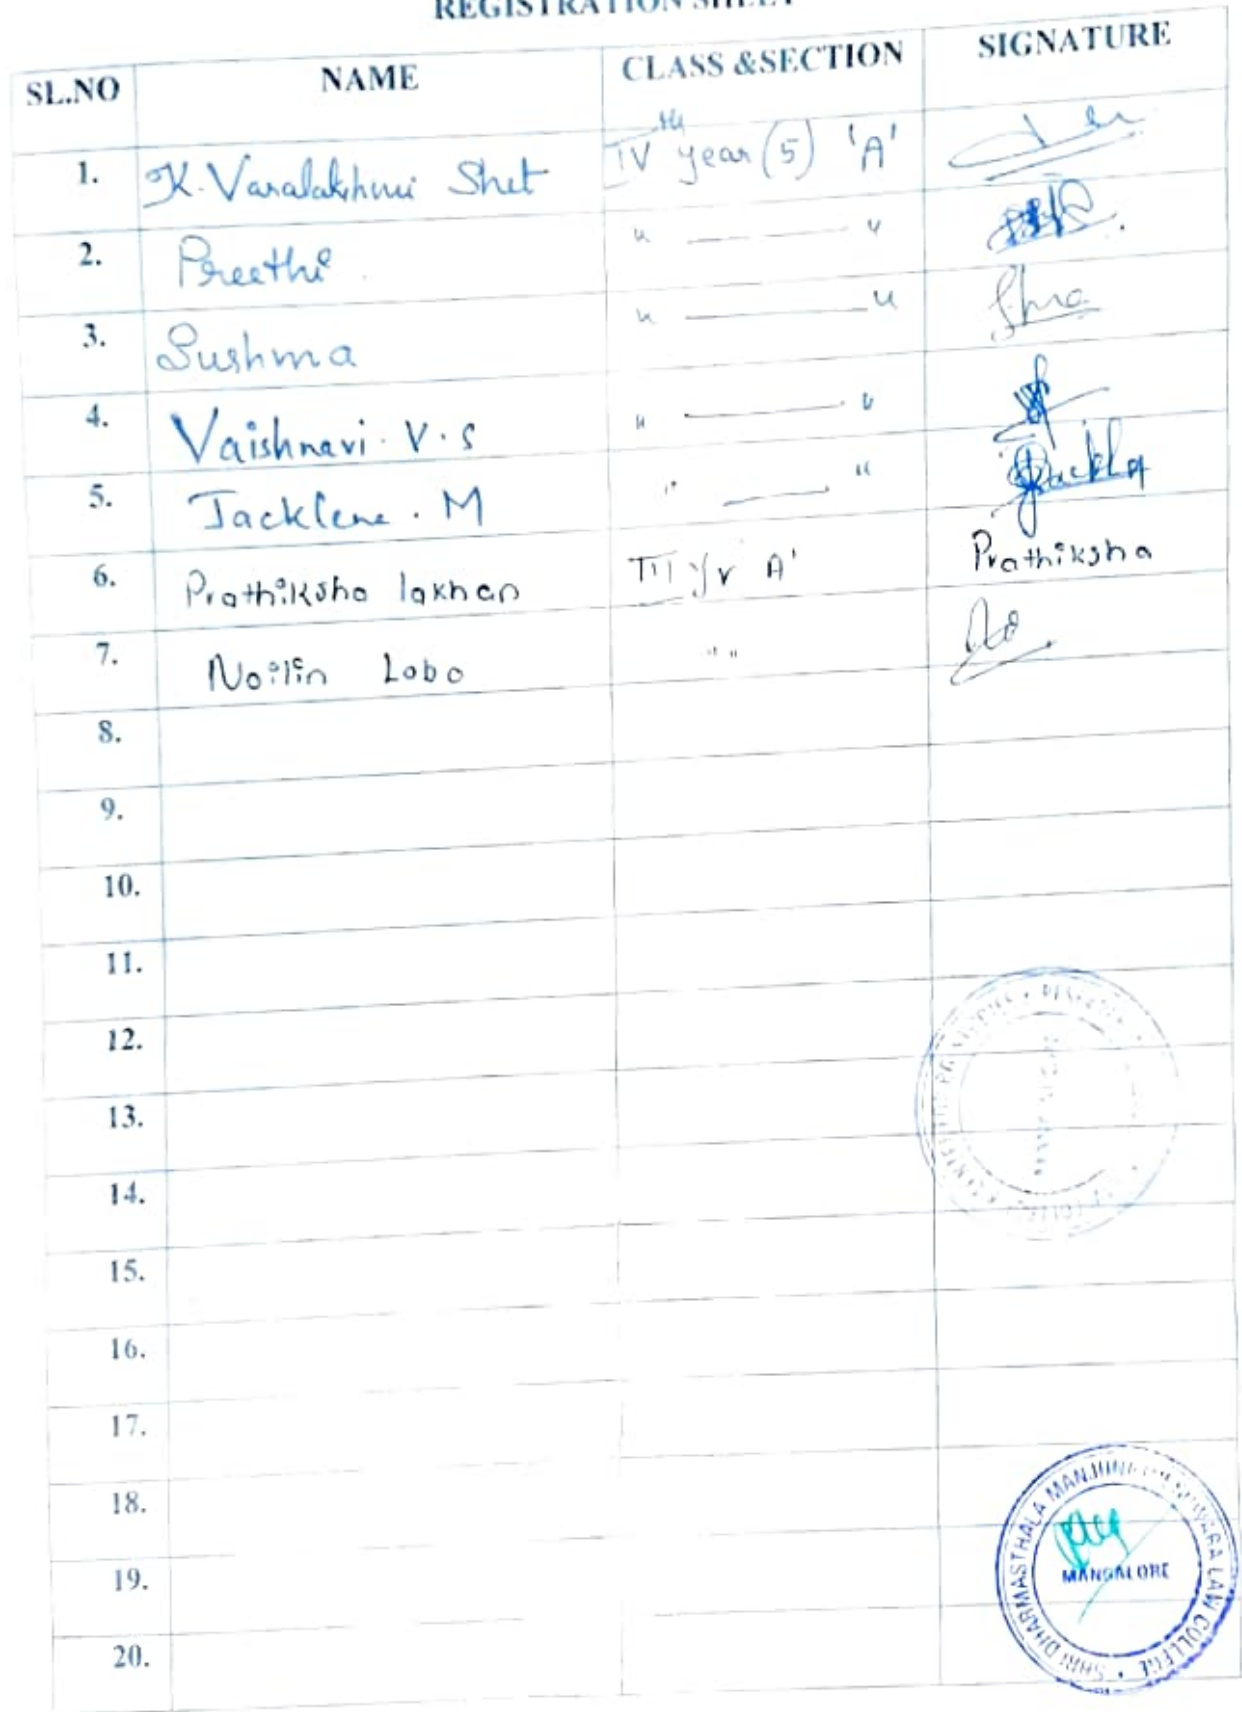 REGISTRATION SHEET
SL.NO NAME CLASS &SECTION SIGNATURE
1. K. Varalakshmi Shet IVth year (5) 'A'
2. Preethi " — "
3. Sushma " — "
4. Vaishnavi . V . S " — "
5. Jacklene . M " — "
6. Prathiksha lakhan III yr A' Prathiksha
7. Noilin Lobo " "
8.
9.
10.
11.
12.
13.
14.
15.
16.
17.
18.
19.
20.
SHRI DHARMASTHALA LAW COLLEGE
MANGALORE